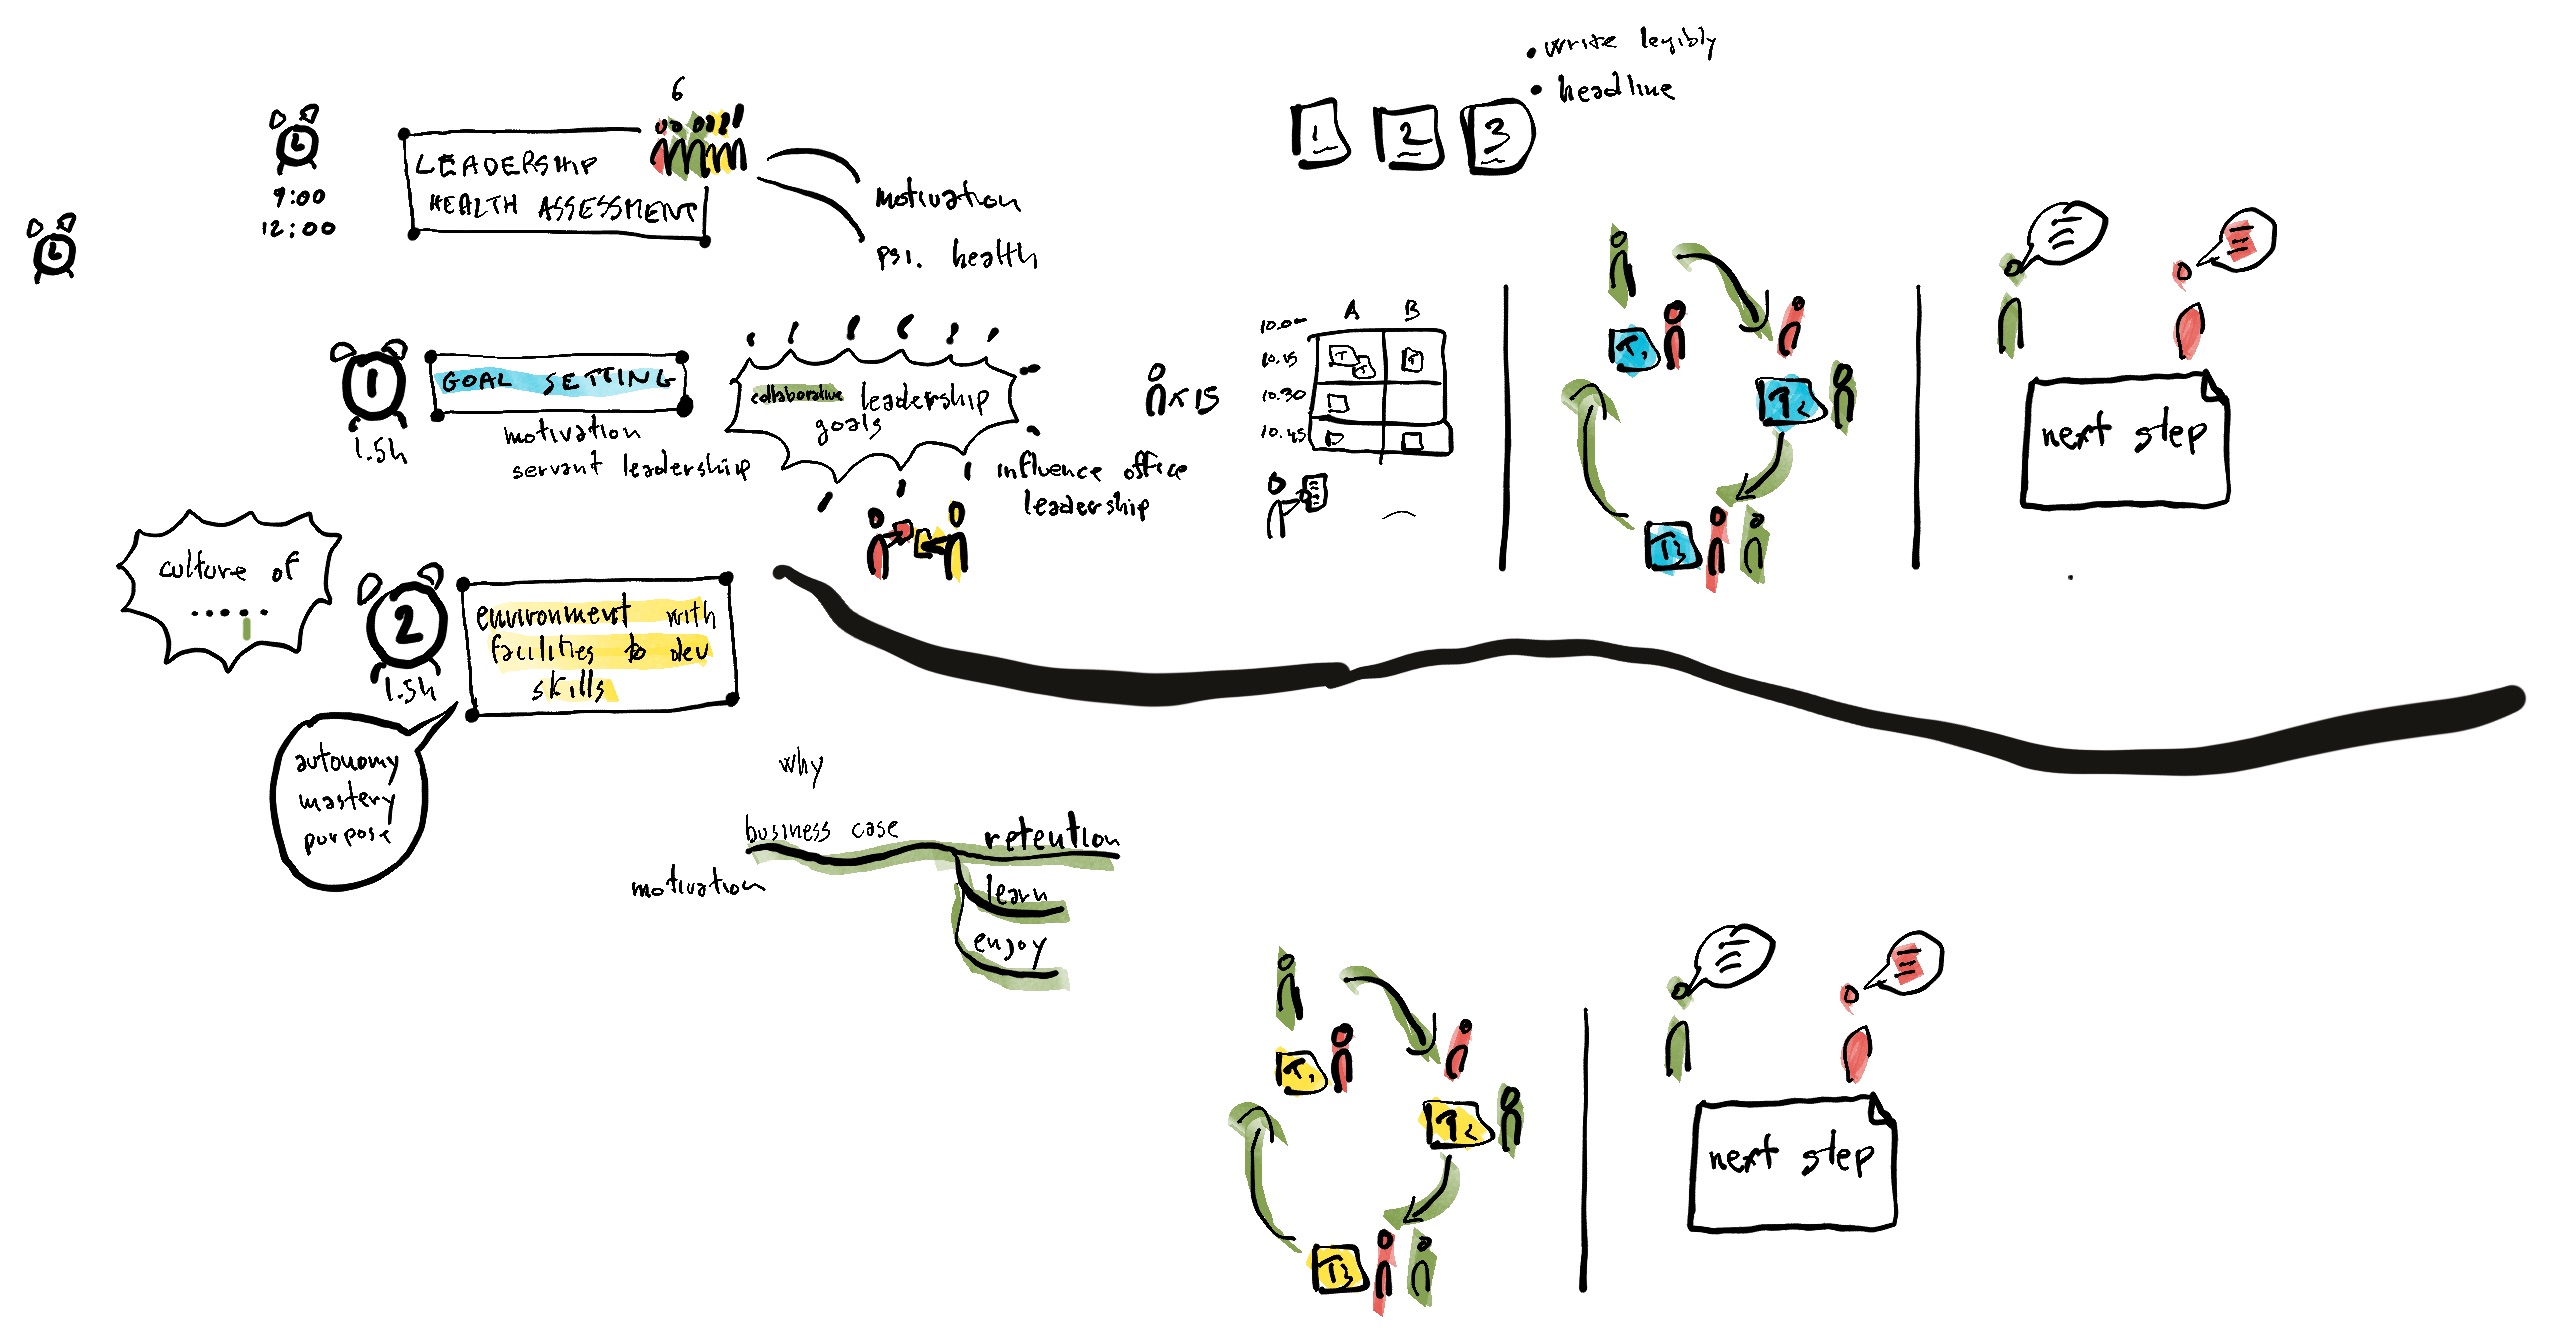 • write legibly
• headline
6
1 2 3
LEADERSHIP
HEALTH ASSESSMENT
9:00
12:00
motivation
psi. health
1
1.5h
GOAL SETTING
motivation
servant leadership
collaborative leadership
goals
influence office
leadership
x 15
A B
10.00
10.15
10.30
10.45
T1
T2
T3
next step
culture of
.....
2
1.5h
environment with
facilities to dev
skills
autonomy
mastery
purpose
why
business case
retention
motivation
learn
enjoy
T1
T2
T3
next step